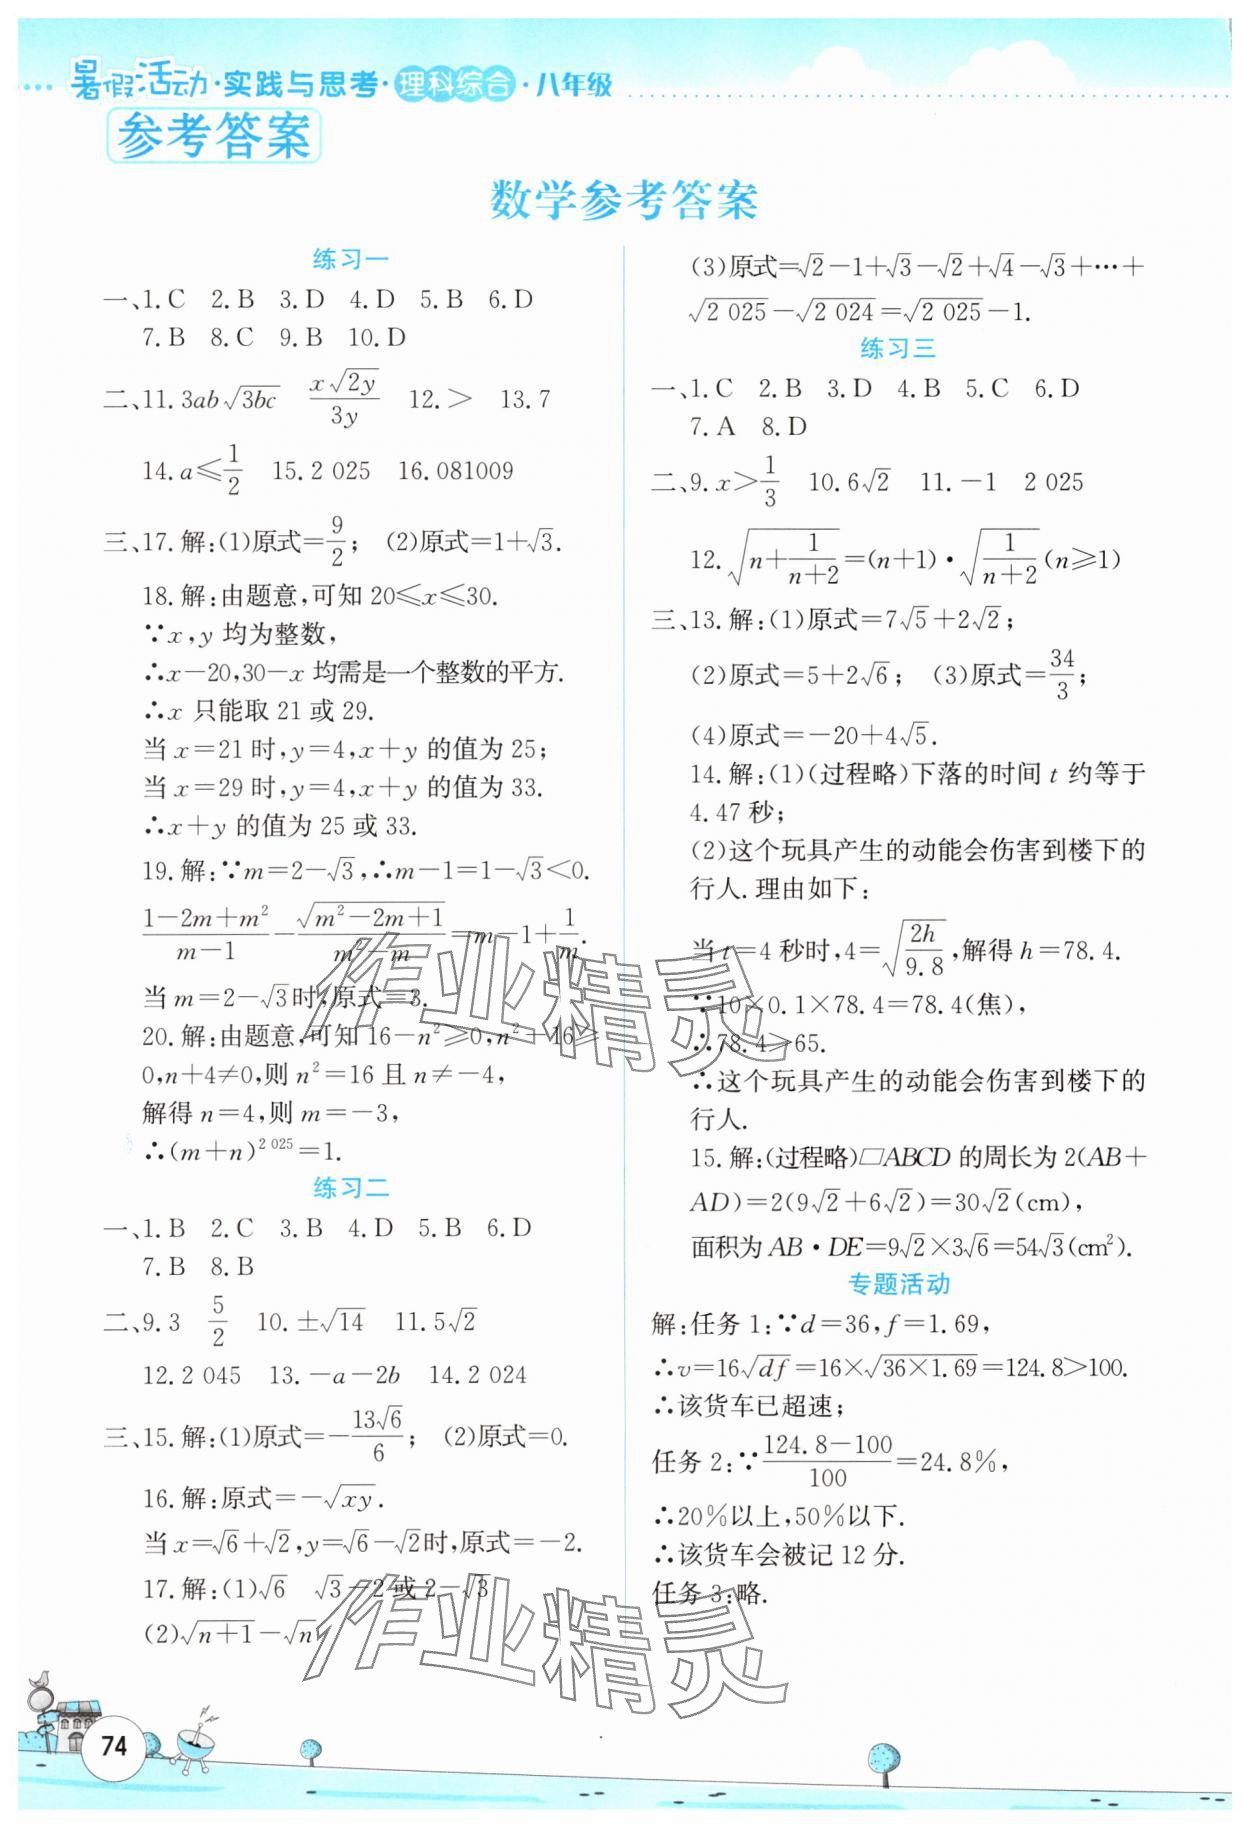 暑假活动·实践与思考·理科综合·八年级
参考答案
数学参考答案
练习一
一、1.C 2.B 3.D 4.D 5.B 6.D
7.B 8.C 9.B 10.D
二、11.3ab√(3bc) x√(2y)/3y 12.> 13.7
14.a≤1/2 15.2 025 16.081009
三、17.解:(1)原式=9/2; (2)原式=1+√3.
18.解:由题意,可知 20≤x≤30.
∵x,y 均为整数,
∴x-20,30-x 均需是一个整数的平方.
∴x 只能取 21 或 29.
当 x=21 时,y=4,x+y 的值为 25;
当 x=29 时,y=4,x+y 的值为 33.
∴x+y 的值为 25 或 33.
19.解:∵m=2-√3,∴m-1=1-√3<0.
(1-2m+m²)/(m-1)-√(m²-2m+1)/(m²-m)=m-1+1/m.
当 m=2-√3时,原式=3.
20.解:由题意,可知 16-n²≥0,n²-16≥
0,n+4≠0,则 n²=16 且 n≠-4,
解得 n=4,则 m=-3,
∴(m+n)^2 025=1.
练习二
一、1.B 2.C 3.B 4.D 5.B 6.D
7.B 8.B
二、9.3 5/2 10.±√14 11.5√2
12.2 045 13.-a-2b 14.2 024
三、15.解:(1)原式=-13√6/6; (2)原式=0.
16.解:原式=-√(xy).
当 x=√6+√2,y=√6-√2时,原式=-2.
17.解:(1)√6 √3-2 或 2-√3
(2)√(n+1)-√n
(3)原式=√2-1+√3-√2+√4-√3+…+
√(2 025)-√(2 024)=√(2 025)-1.
练习三
一、1.C 2.B 3.D 4.B 5.C 6.D
7.A 8.D
二、9.x>1/3 10.6√2 11.-1 2 025
12.√(n+1/(n+2))=(n+1)·√(1/(n+2))(n≥1)
三、13.解:(1)原式=7√5+2√2;
(2)原式=5+2√6; (3)原式=34/3;
(4)原式=-20+4√5.
14.解:(1)(过程略)下落的时间 t 约等于
4.47秒;
(2)这个玩具产生的动能会伤害到楼下的
行人.理由如下:
当 t=4 秒时,4=√(2h/9.8),解得 h=78.4.
∵10×0.1×78.4=78.4(焦),
∴78.4>65.
∴这个玩具产生的动能会伤害到楼下的
行人.
15.解:(过程略)▱ABCD 的周长为 2(AB+
AD)=2(9√2+6√2)=30√2(cm),
面积为 AB·DE=9√2×3√6=54√3(cm²).
专题活动
解:任务 1:∵d=36,f=1.69,
∴v=16√(df)=16×√(36×1.69)=124.8>100.
∴该货车已超速;
任务 2:∵(124.8-100)/100=24.8%,
∴20%以上,50%以下.
∴该货车会被记 12 分.
任务 3:略.
作业精灵
作业精灵
74